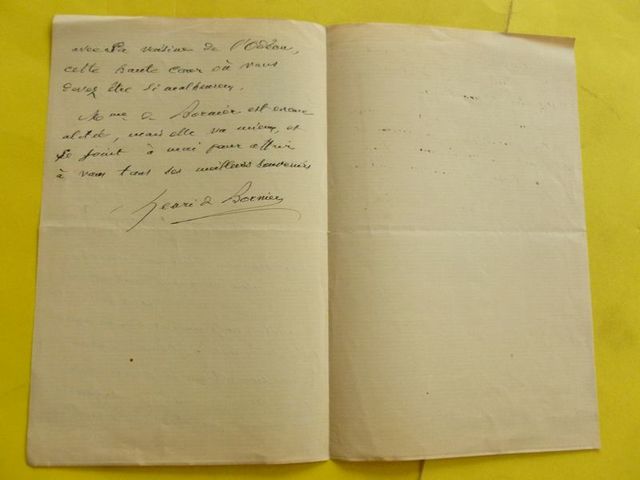 avec la voisine de l'Odéon,
cette haute cour où vous
devez être si malheureux.
Mme de Bornier est encore
alitée, mais elle va mieux, et
se joint à moi pour offrir
à vous tous ses meilleurs souvenirs
Henri de Bornier